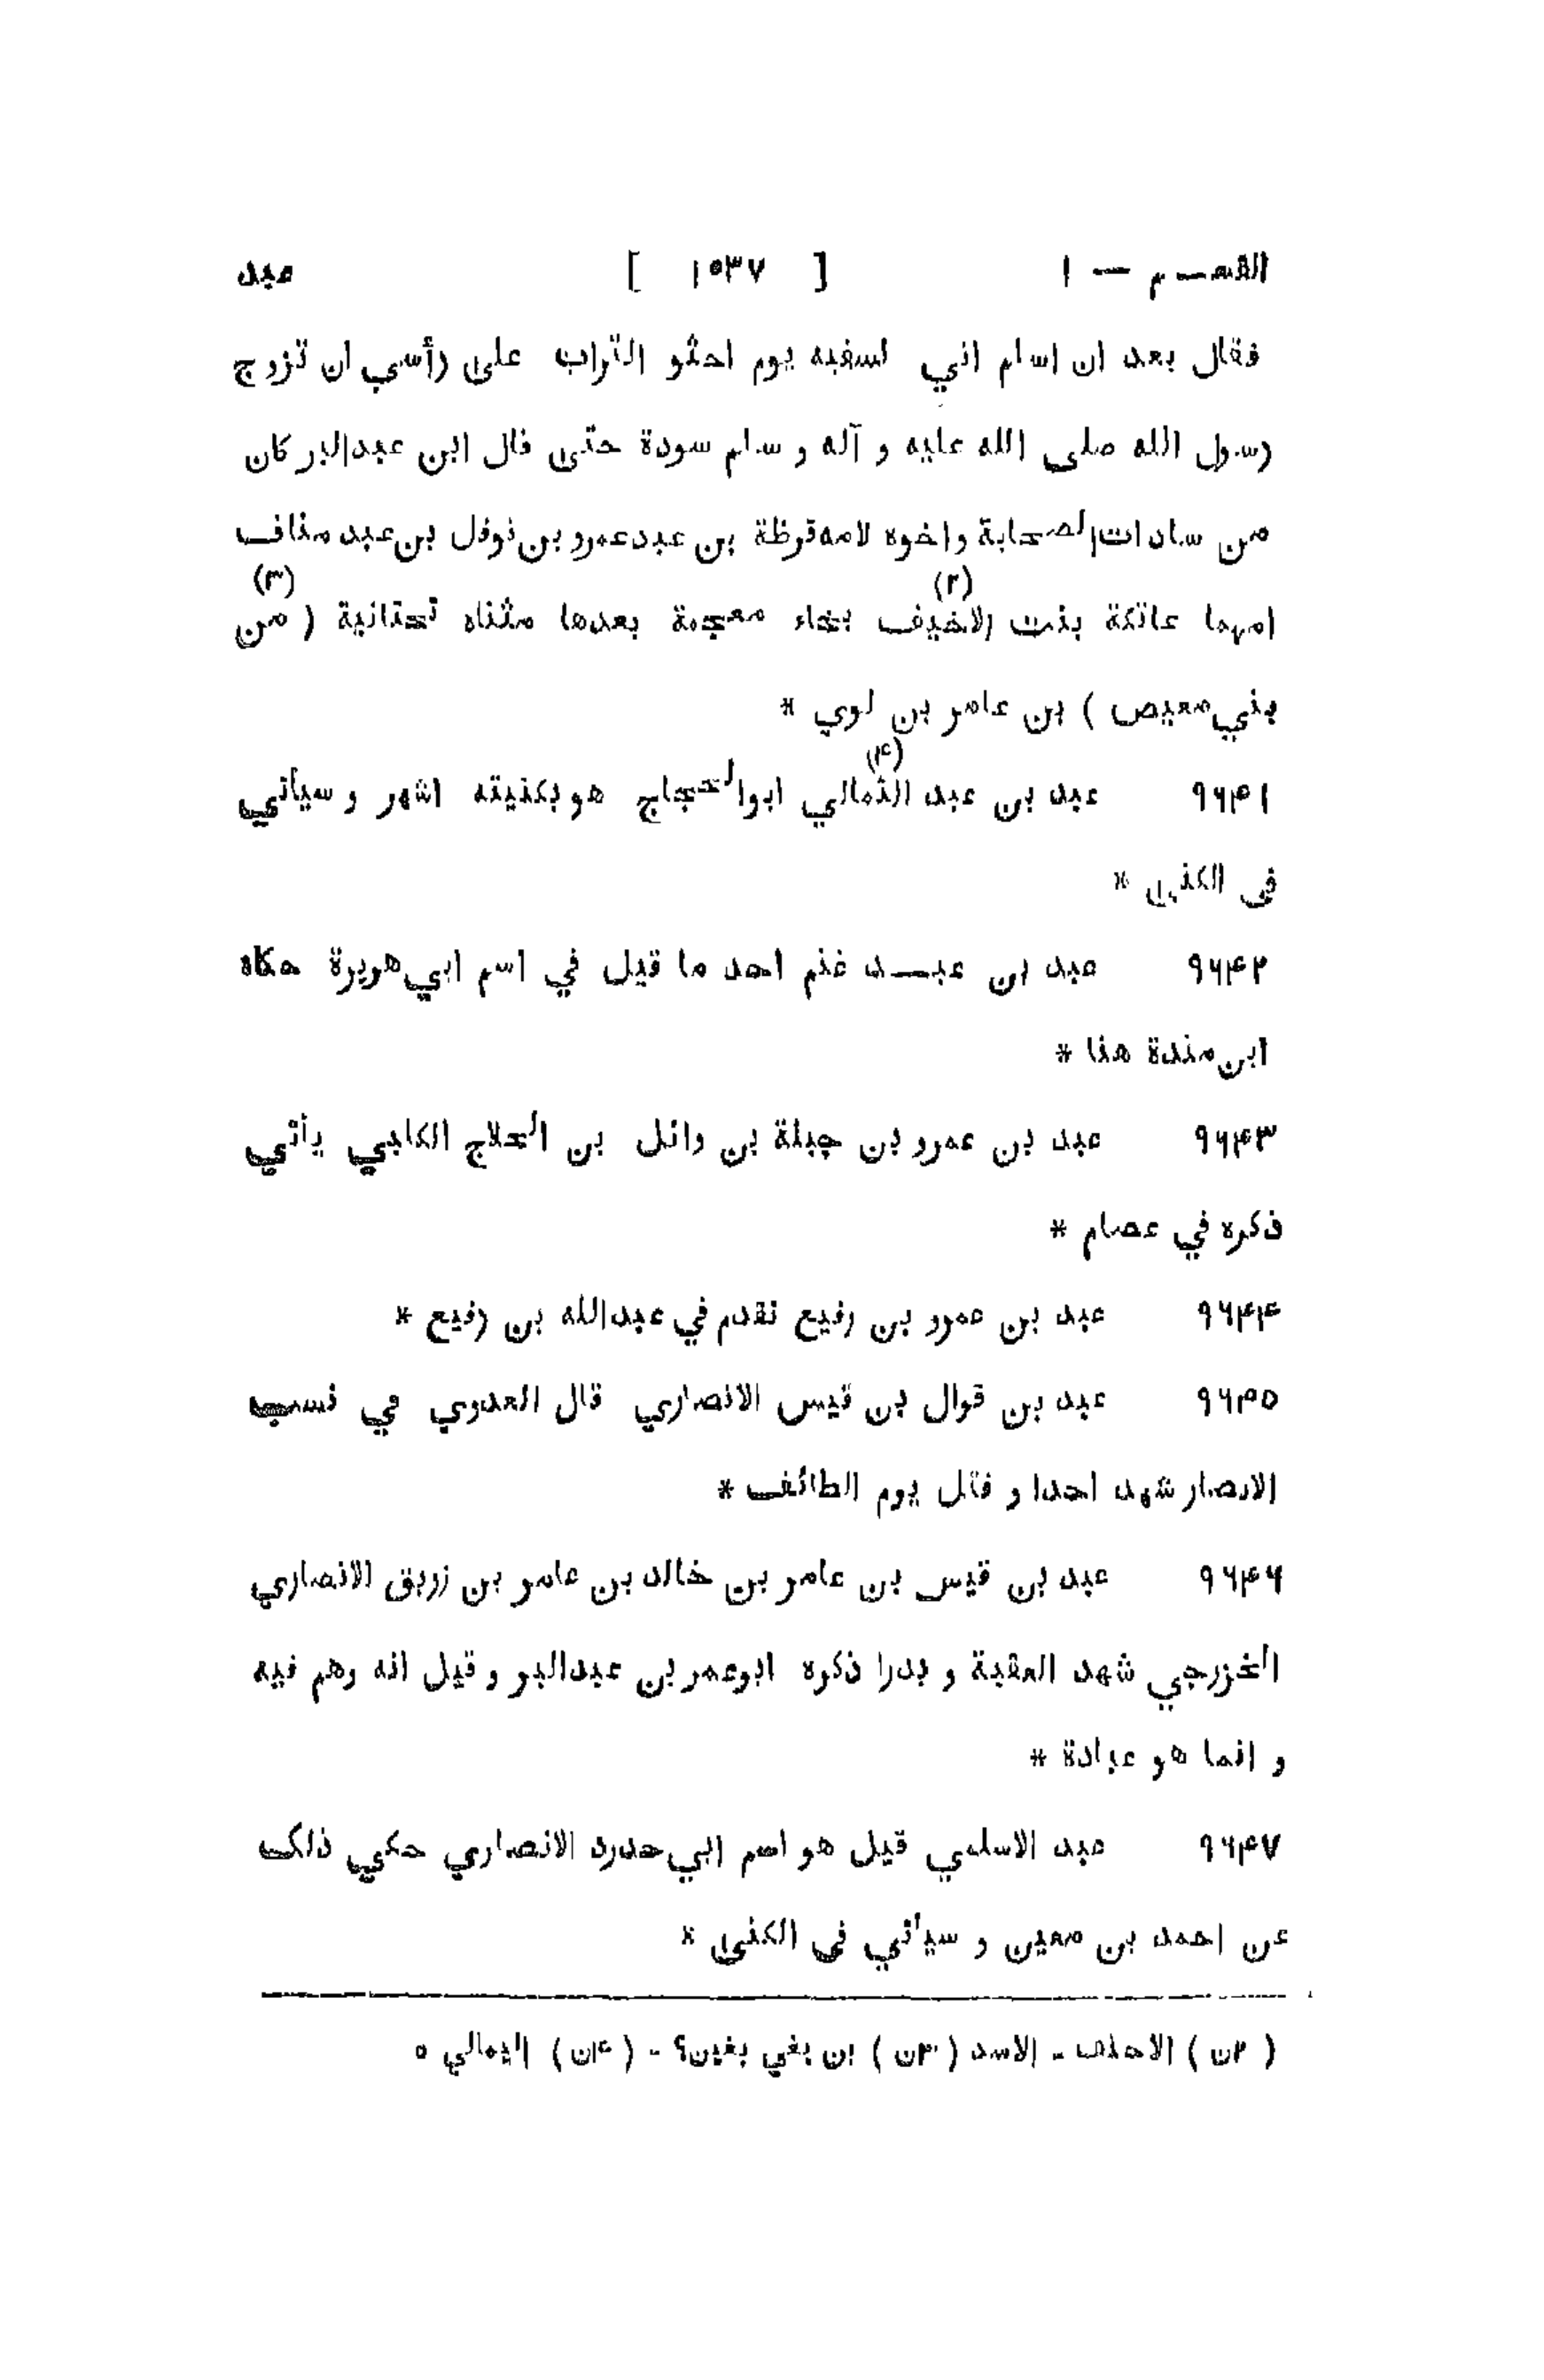 القسم — ١ [ ١٥٣٧ ] عبد
فقال بعد ان اسلم اني لسفيه يوم احثو التراب على رأسي ان تزوج
رسول الله صلى الله عليه و آله و سلم سودة حتى قال ابن عبدالبر كان
من سادات الصحابة واخوه لامه قرظة بن عبدعمرو بن نوفل بن عبد مناف
امهما عاتكة بنت الاخيف (٢) بخاء معجمة بعدها مثناه تحتانية ( من (٣)
بني معيص ) بن عامر بن لوي *
٩٦۴١ عبد بن عبد الثمالي (۴) ابوالحجاج هو بكنيته اشهر و سيأتي
في الكنى *
٩٦۴٢ عبد بن عبد غنم احد ما قيل في اسم ابي هريرة حكاه
ابن مندة هنا *
٩٦۴٣ عبد بن عمرو بن جبلة بن وائل بن الحلاج الكلبي يأتي
ذكره في عصام *
٩٦۴۴ عبد بن عمرو بن رفيع تقدم في عبدالله بن رفيع *
٩٦۴٥ عبد بن قوال بن قيس الانصاري قال العدوي في نسب
الانصار شهد احدا و قتل يوم الطائف *
٩٦۴٦ عبد بن قيس بن عامر بن خالد بن عامر بن زريق الانصاري
الخزرجي شهد العقبة و بدرا ذكره ابوعمر بن عبدالبر و قيل انه وهم فيه
و انما هو عبادة *
٩٦۴٧ عبد الاسلمي قيل هو اسم ابي حدرد الانصاري حكي ذلك
عن احمد بن معين و سيأتي في الكنى *
( ٢ن ) الاحنف - الاسد ( ٣ن ) بن بغي بغين؟ - ( ۴ن ) اليمالي ٥